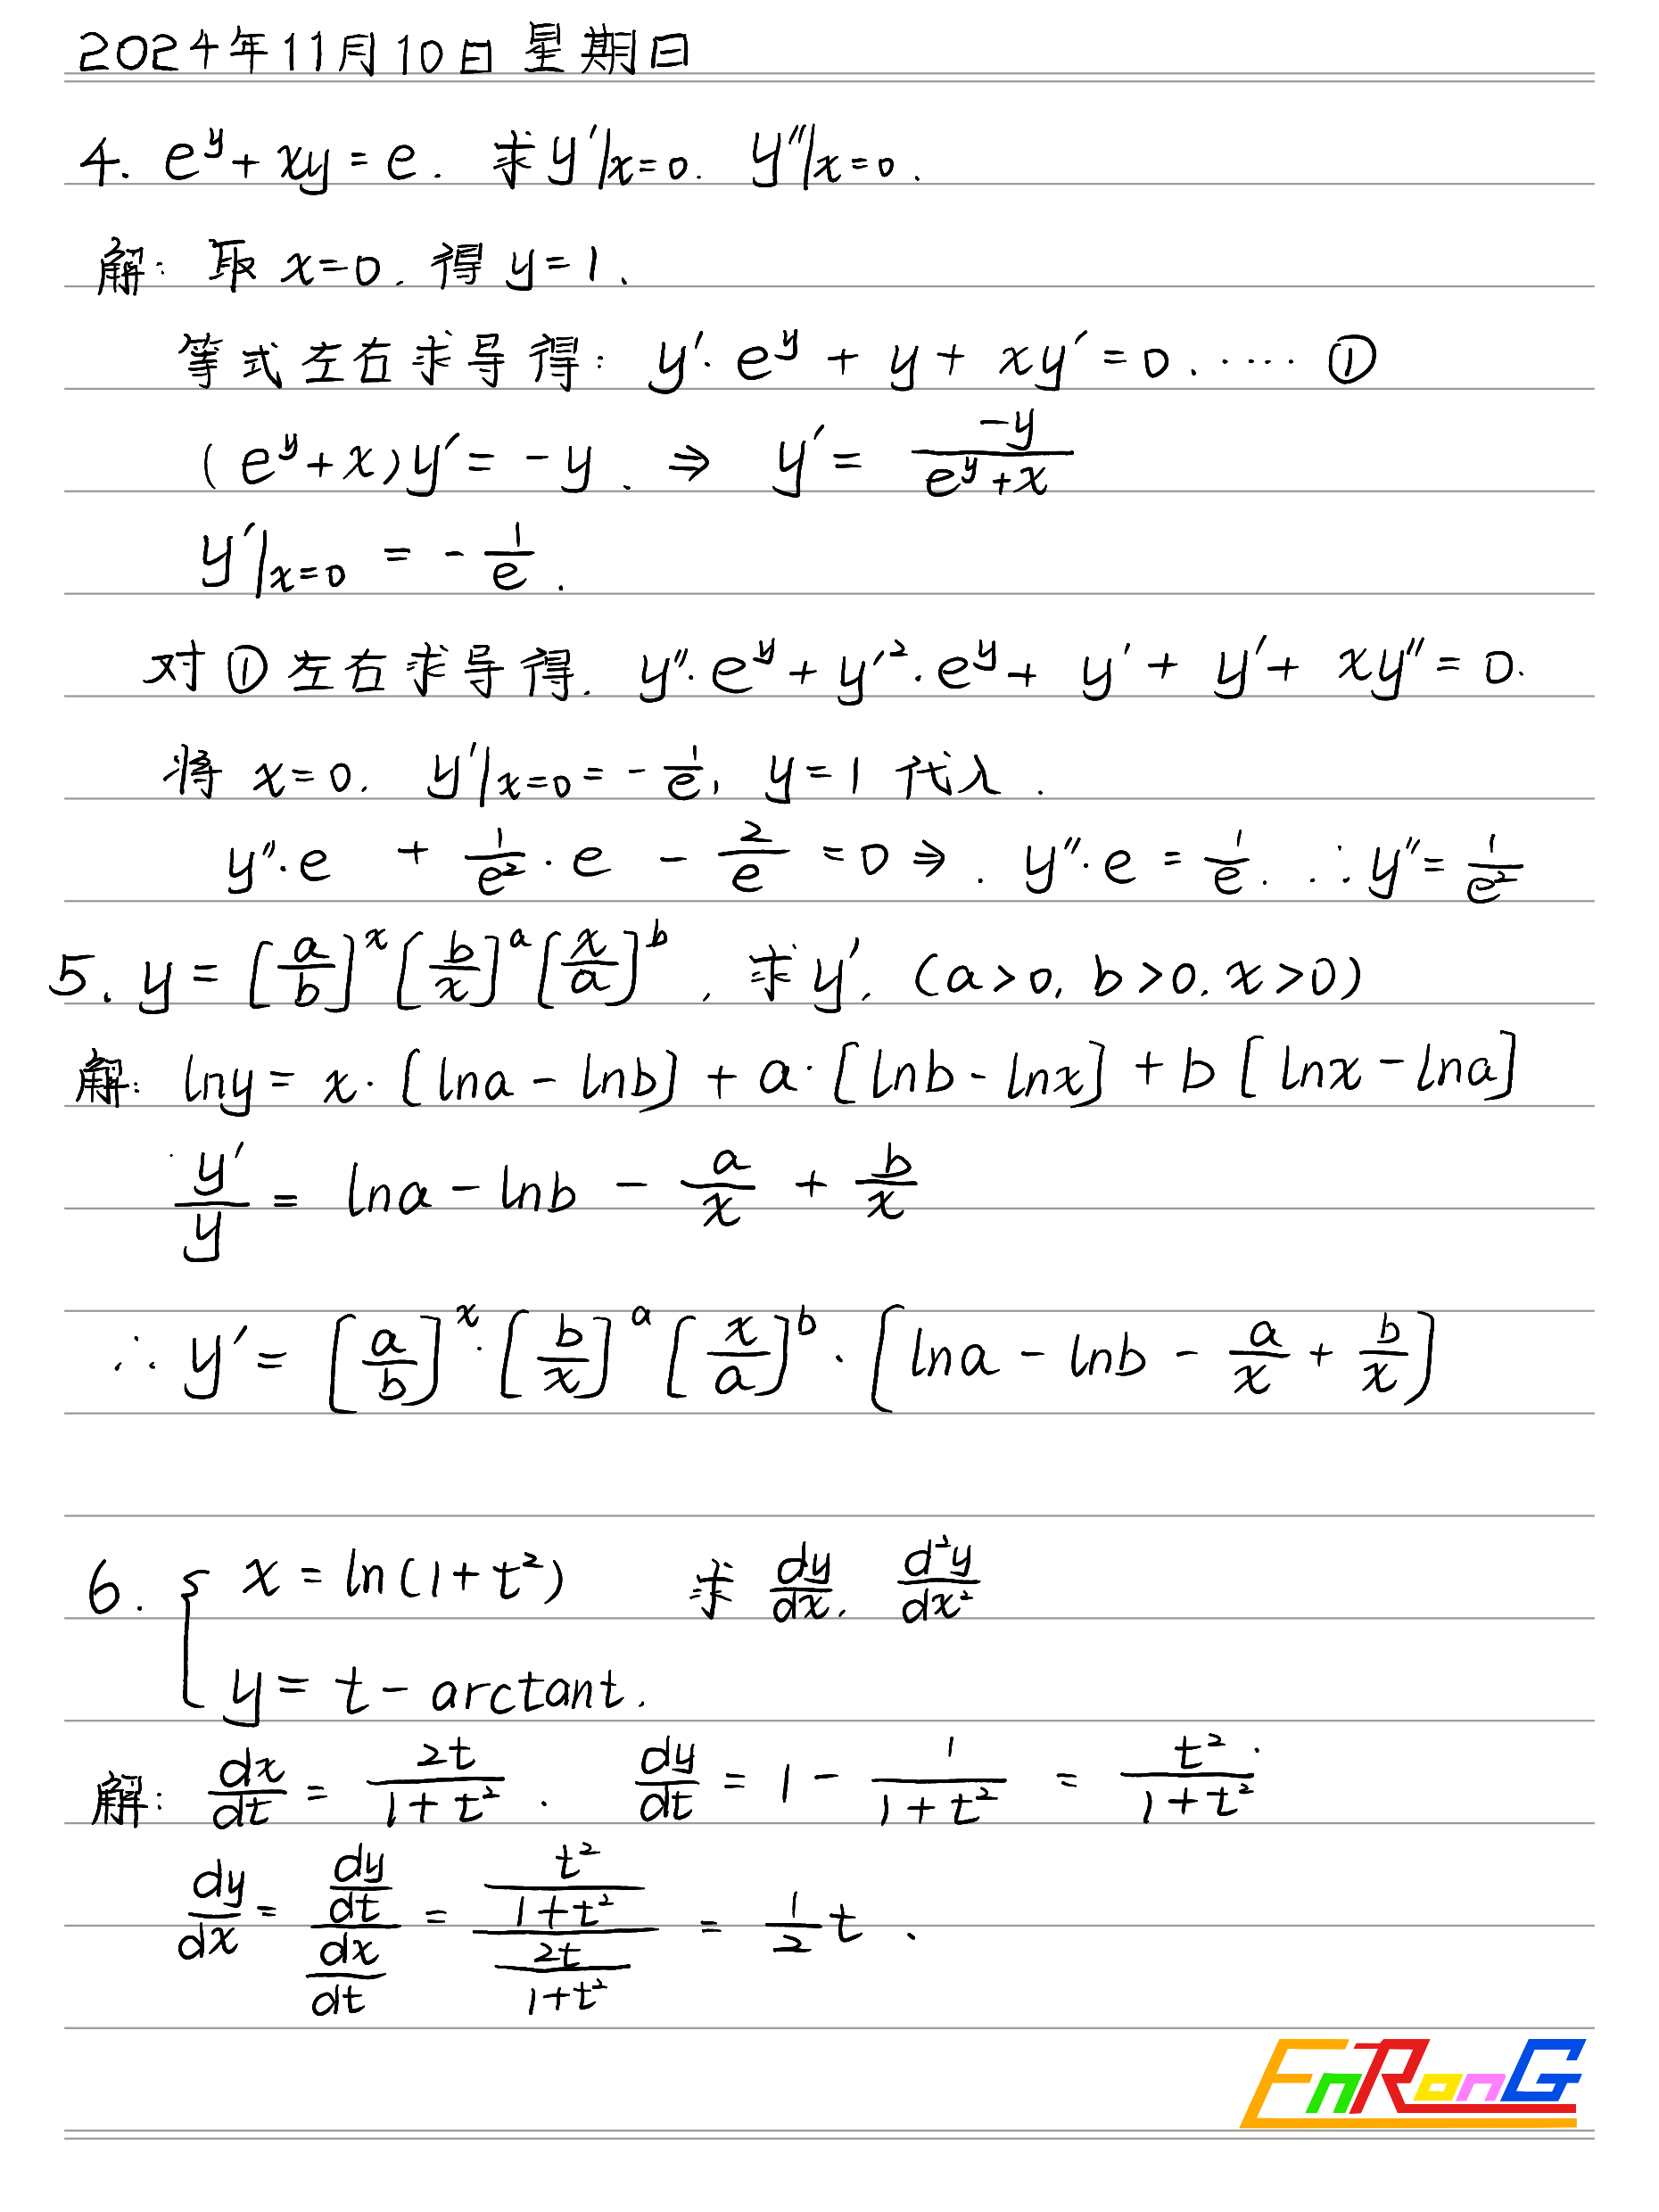 2024年11月10日 星期日
4. e^y + xy = e. 求 y'|x=0. y''|x=0.
解: 取 x=0. 得 y=1.
等式左右求导得: y'·e^y + y + xy' = 0. ···· ①
(e^y + x)y' = -y. ⇒ y' = -y/(e^y + x)
y'|x=0 = - 1/e.
对①左右求导得. y''·e^y + y'^2·e^y + y' + y' + xy'' = 0.
将 x=0. y'|x=0 = - 1/e, y=1 代入.
y''·e + 1/e^2 · e - 2/e = 0 ⇒. y''·e = 1/e. ∴ y'' = 1/e^2
5. y = [a/b]^x [b/x]^a [x/a]^b, 求 y'. (a>0, b>0. x>0)
解: lny = x·[lna - lnb] + a·[lnb - lnx] + b[lnx - lna]
y'/y = lna - lnb - a/x + b/x
∴ y' = [a/b]^x · [b/x]^a [x/a]^b · [lna - lnb - a/x + b/x]
6. { x = ln(1+t^2) 求 dy/dx. d^2y/dx^2
y = t - arctant.
解: dx/dt = 2t/(1+t^2). dy/dt = 1 - 1/(1+t^2) = t^2/(1+t^2).
dy/dx = (dy/dt)/(dx/dt) = (t^2/(1+t^2))/(2t/(1+t^2)) = 1/2 t.
EnRonG